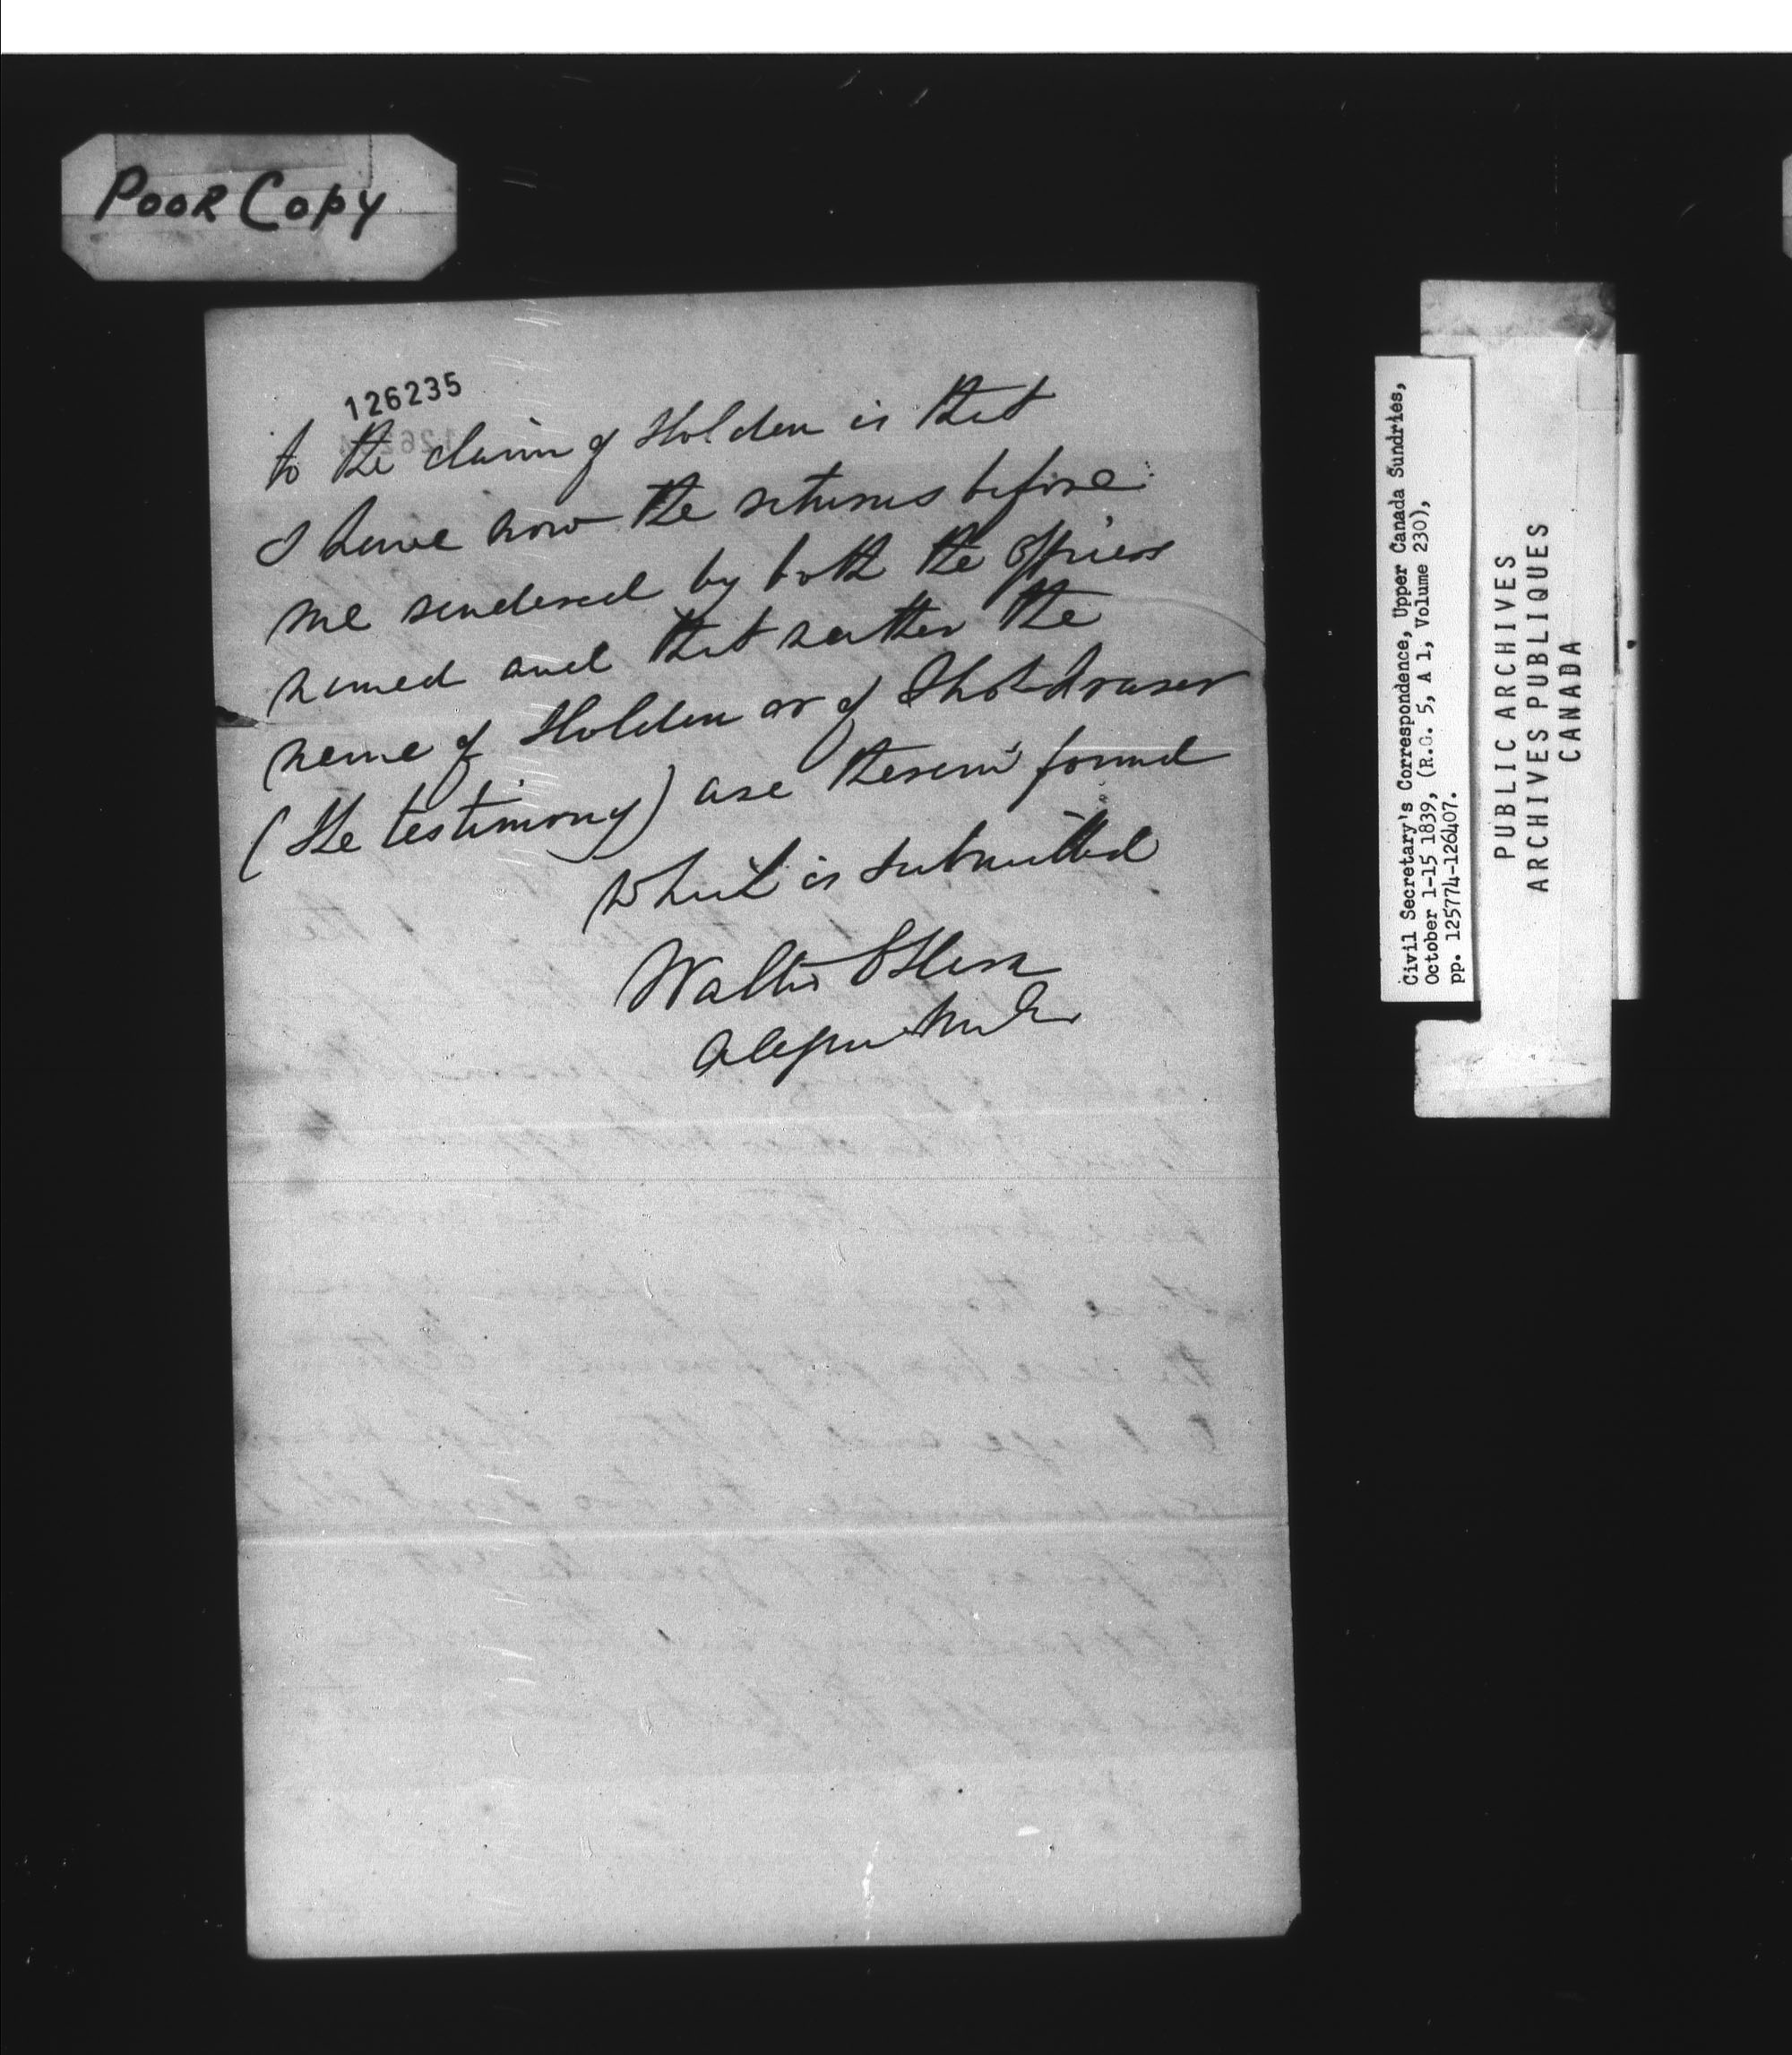 POOR COPY
126235
to the claim of Holden is that
I have now the returns before
me rendered by both the officers
named and that neither the
name of Holden or of Shotdraser
(the testimony) are therein found
which is submitted
Walter O'Hara
Civil Secretary's Correspondence, Upper Canada Sundries,
October 1-15 1839, (R.G. 5, A 1, Volume 230),
pp. 125774-126407.
PUBLIC ARCHIVES
ARCHIVES PUBLIQUES
CANADA